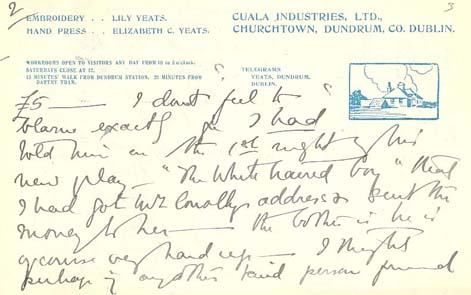 2
3
EMBROIDERY . . LILY YEATS.
HAND PRESS . . ELIZABETH C. YEATS.
CUALA INDUSTRIES, LTD.,
CHURCHTOWN, DUNDRUM, CO. DUBLIN.
WORKROOMS OPEN TO VISITORS ANY DAY FROM 10 to 5 o'clock.
SATURDAYS CLOSE AT 12.
15 MINUTES' WALK FROM DUNDRUM STATION. 25 MINUTES FROM
DARTRY TRAM.
TELEGRAMS
YEATS, DUNDRUM,
DUBLIN.
£5 — I dont feel to
blame exactly for I had
told him on the 1st night of his
new play — "The White haired boy" that
I had got Mrs Conollys address & sent the
money to her — the bother is he is
of course very hard up — I thought
perhaps if any other kind person